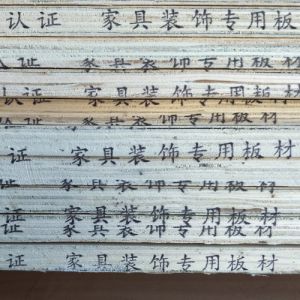 认证 家具装饰专用板
认证 家具装饰专用板材
认证 家具装饰专用板材
认证 家具装饰专用板材
证 家具装饰专用板材
证 家具装饰专用板材
证 家具装饰专用板材
证 家具装饰专用板材
证 家具装饰专用板材